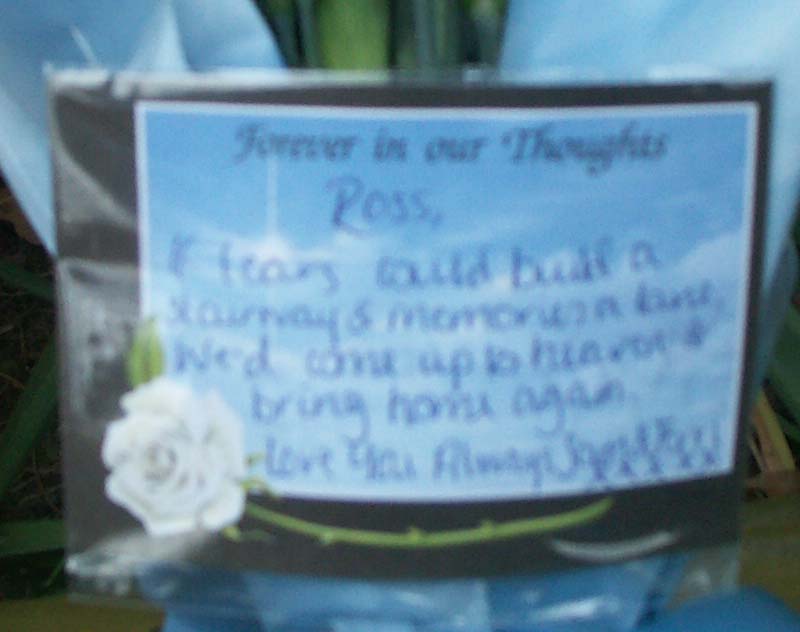 Forever in our Thoughts
Ross,
If tears could build a
stairway & memories a lane,
We'd come up to heaven &
bring home again.
Love You Always
xxxxx